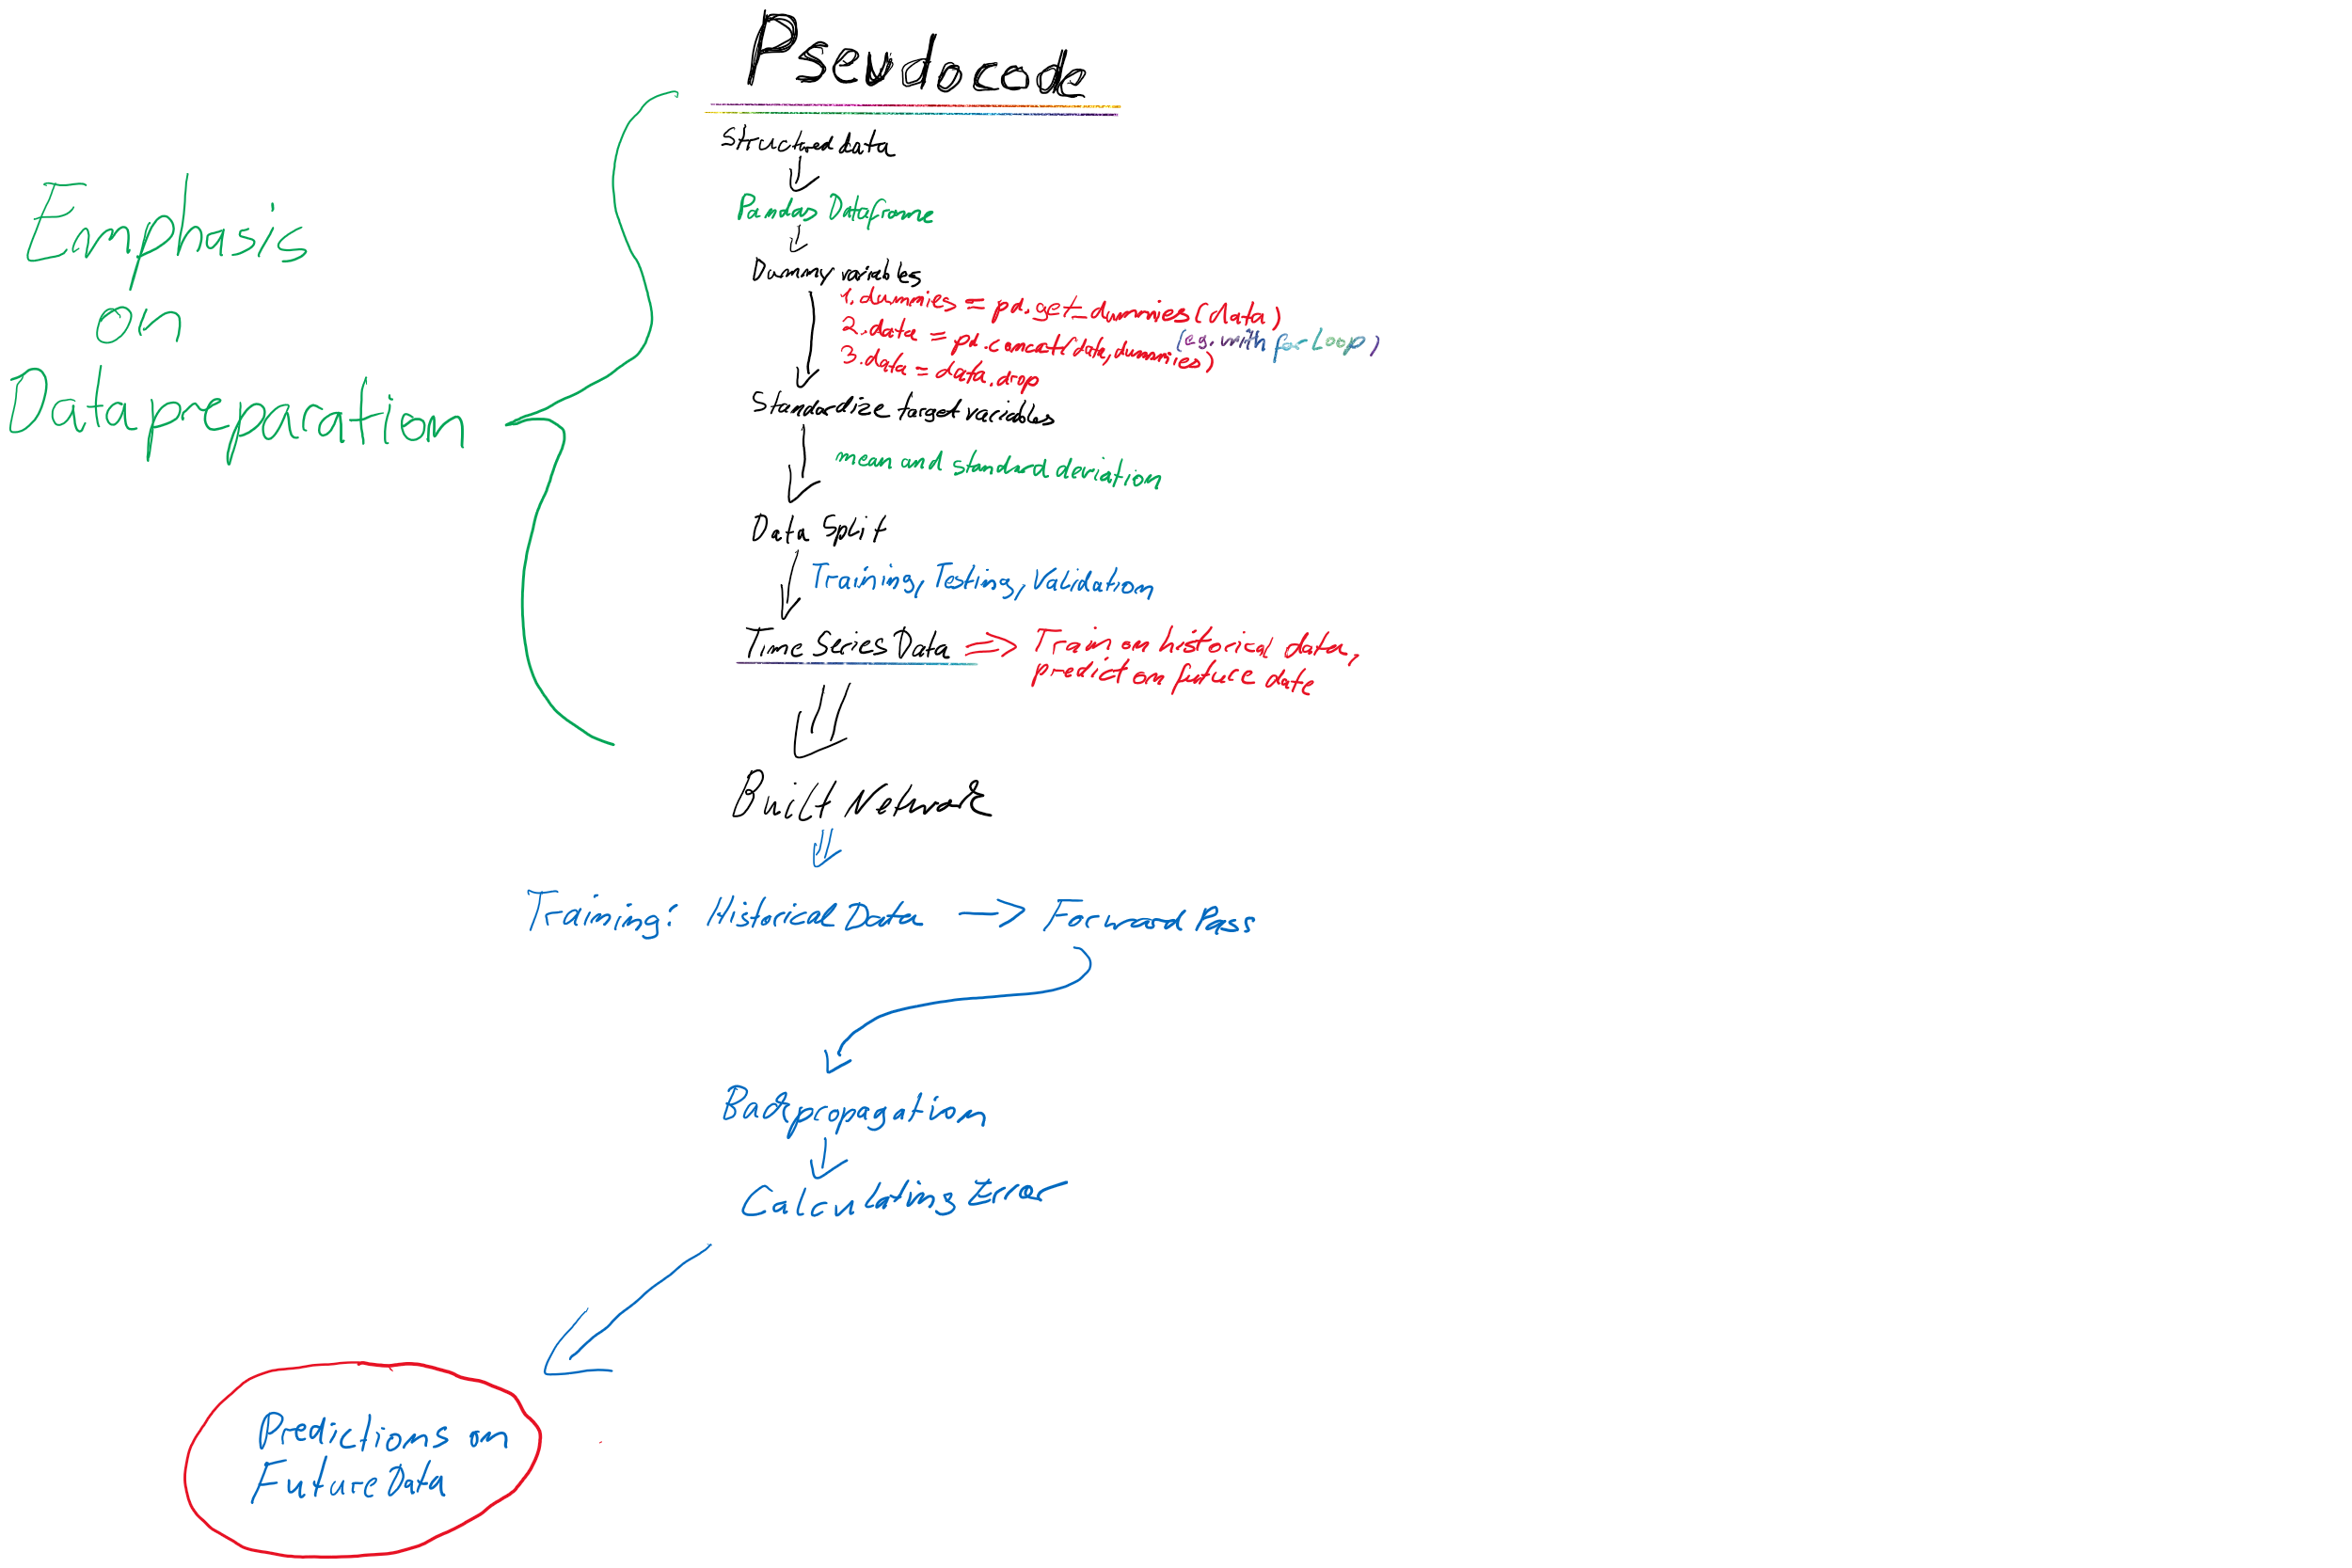 Pseudocode
Structured data
Pandas Dataframe
Dummy variables
1. dummies = pd.get_dummies(data)
2. data = pd.concat(data, dummies)
(eg. with for Loop)
3. data = data.drop
Standardize target variables
mean and standard deviation
Data Split
Training, Testing, Validation
Time Series Data => Train on historical data,
predict on future date
Emphasis
on
Datapreparation
Built Network
Training: Historical Data -> Forward Pass
Backpropagation
Calculating Error
Predictions on
Future Data